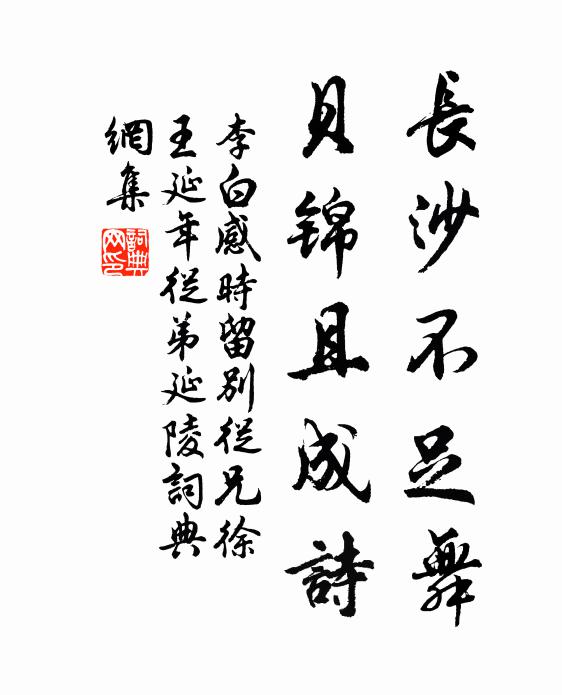 長沙不足舞
貝锦且成詩
李白感時留別從兄徐
王延年從弟延陵詞典
網集
詞典
网印